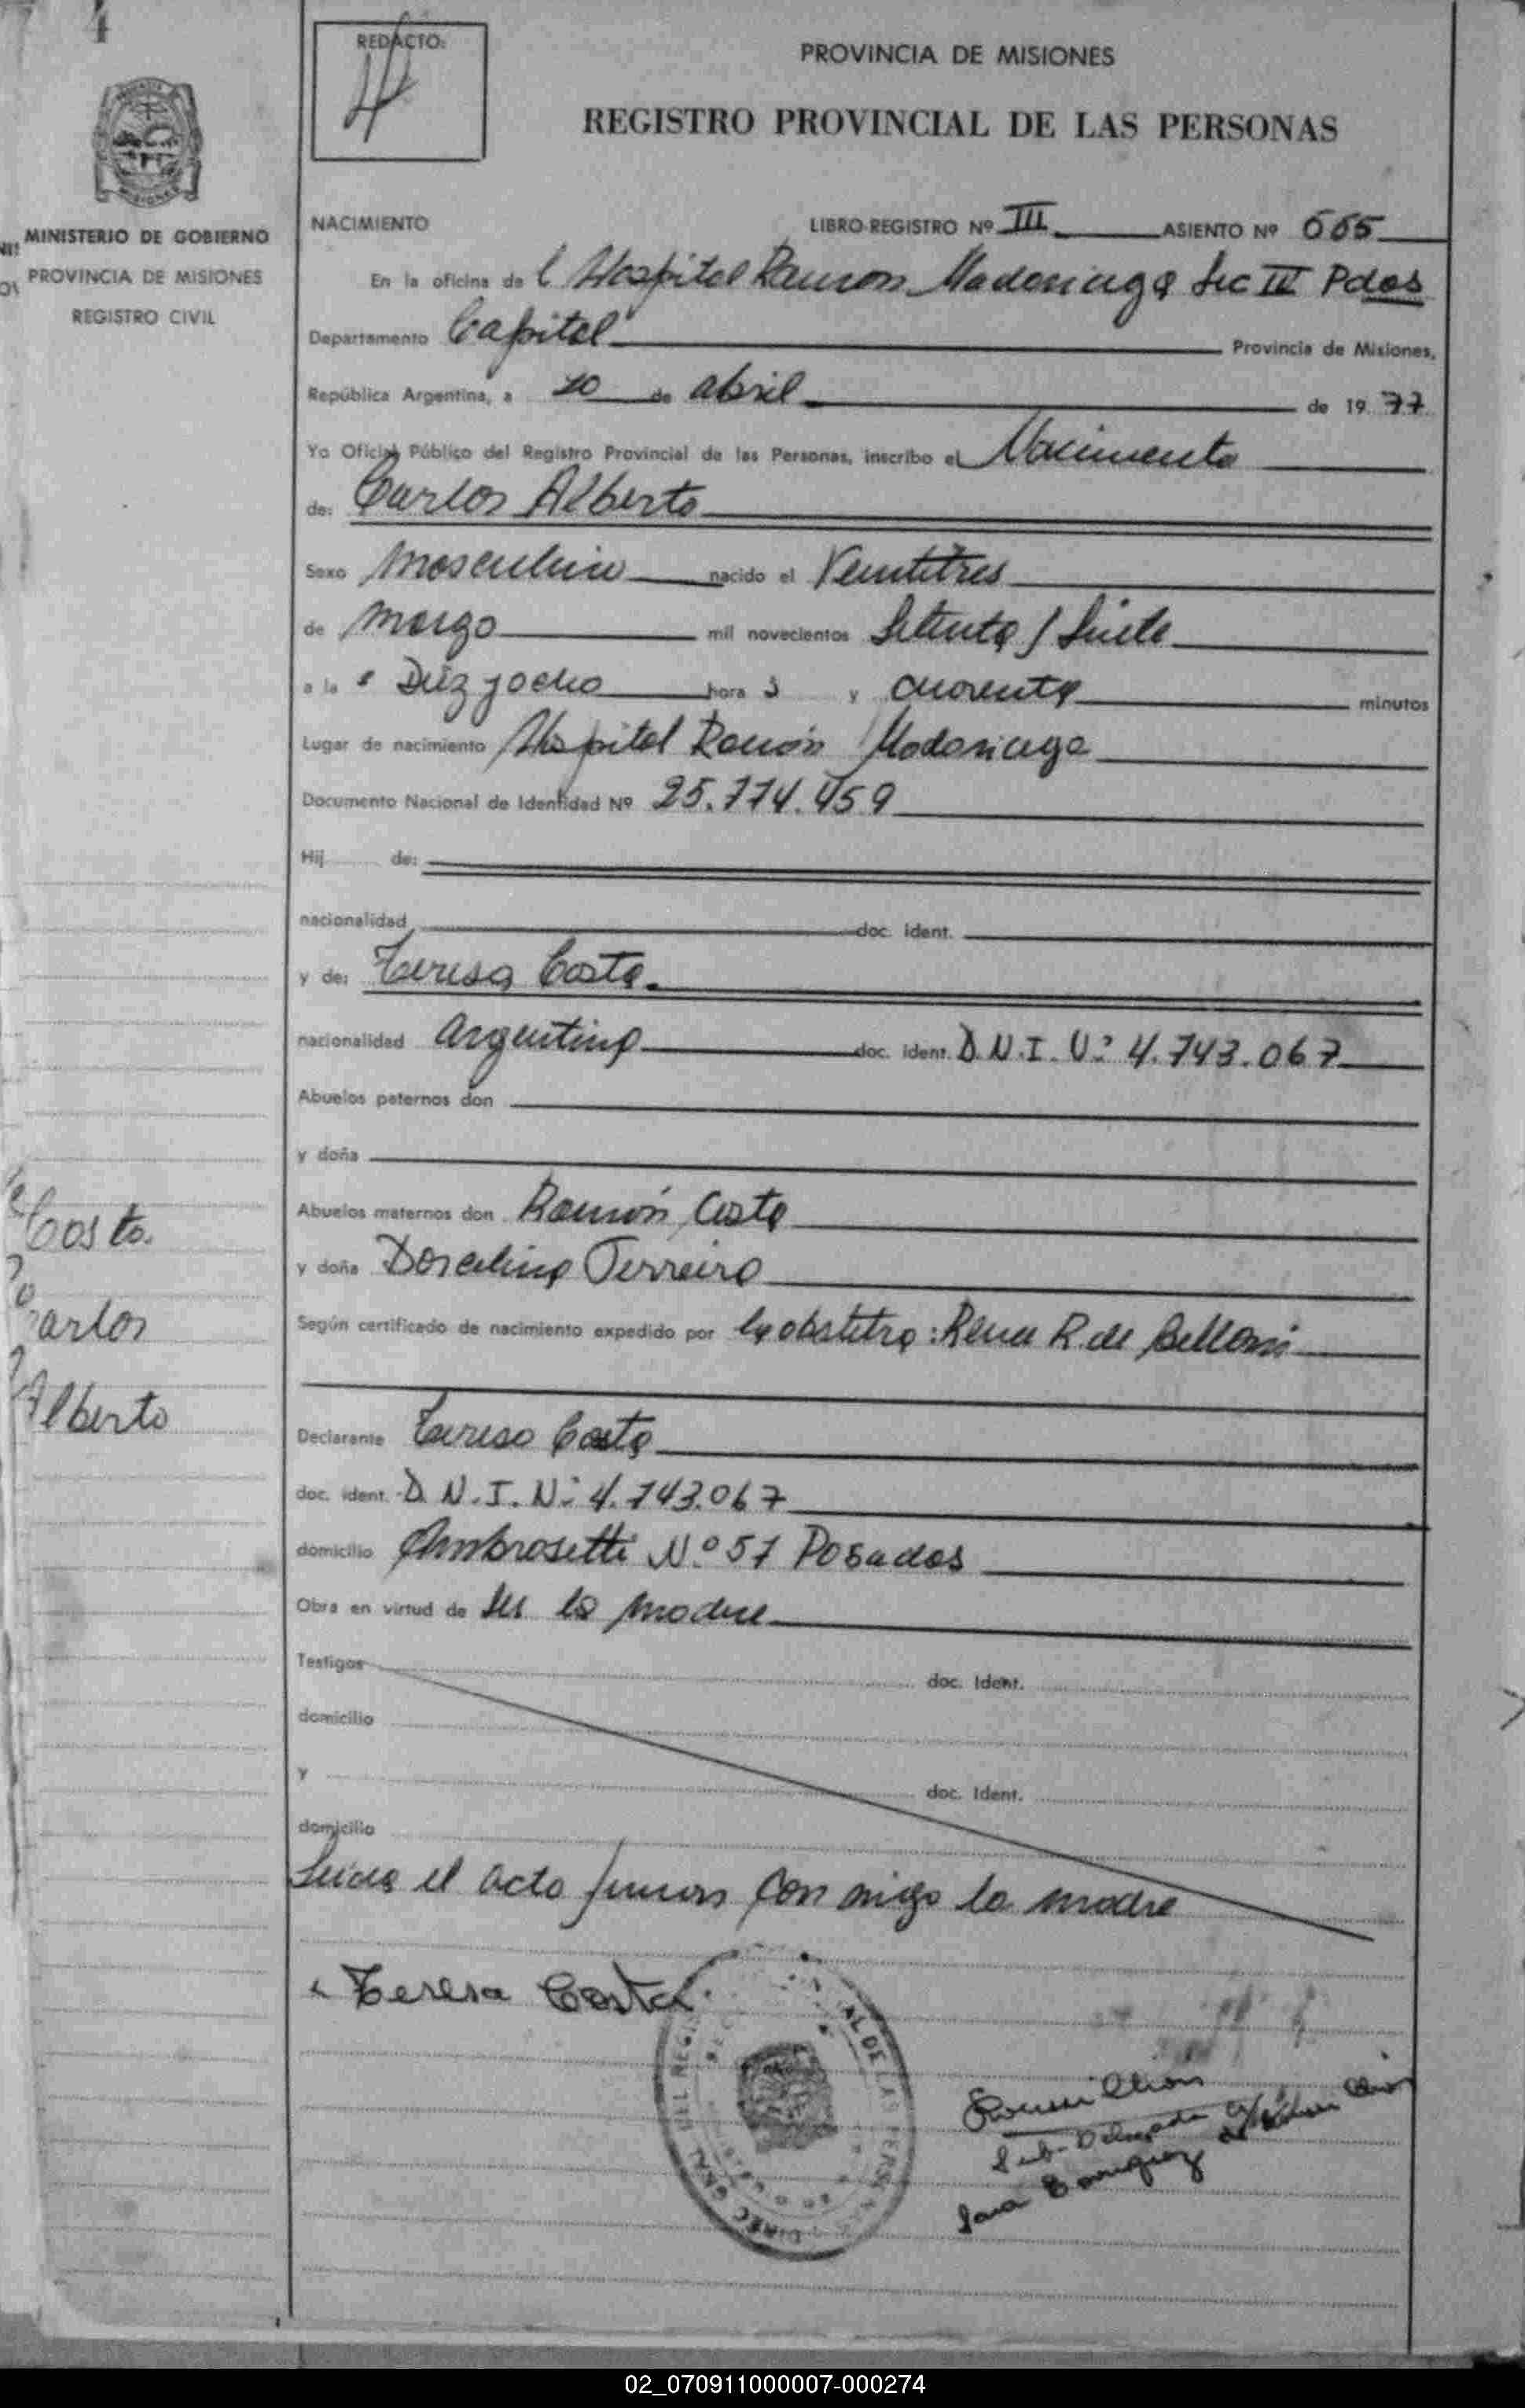 REDACTO:
PROVINCIA DE MISIONES
REGISTRO PROVINCIAL DE LAS PERSONAS
MINISTERIO DE GOBIERNO
PROVINCIA DE MISIONES
REGISTRO CIVIL
NACIMIENTO LIBRO-REGISTRO Nº III ASIENTO Nº 665
En la oficina de l Hospital Ramon Madariaga Sec III Pdas
Departamento Capital Provincia de Misiones,
República Argentina, a 20 de abril de 1977
Yo Oficial Público del Registro Provincial de las Personas, inscribo el Nacimiento
de: Carlos Alberto
Sexo Masculino nacido el Veintitres
de Marzo mil novecientos Setenta y Siete
a la s Diez y ocho hora s y cuarenta minutos
Lugar de nacimiento Hospital Ramón Madariaga
Documento Nacional de Identidad Nº 25.774.459
Hij de:
nacionalidad doc. ident.
y de: Teresa Costa.
nacionalidad argentina doc. ident. D.N.I. Nº 4.743.067
Abuelos paternos don
y doña
Abuelos maternos don Ramón Costa
y doña Dorcelina Ferreira
Según certificado de nacimiento expedido por la obstetra: Rene R. de Belloni
Declarante Teresa Costa
doc. ident. D.N.I. Nº 4.743.067
domicilio Ambrosetti Nº 57 Posadas
Obra en virtud de ser la madre
Testigos doc. Ident.
domicilio
y doc. Ident.
domicilio
Leída el acta firman con migo la madre
Teresa Costa.
Costa.
Carlos
Alberto
Sub-Delegada
02_070911000007-000274